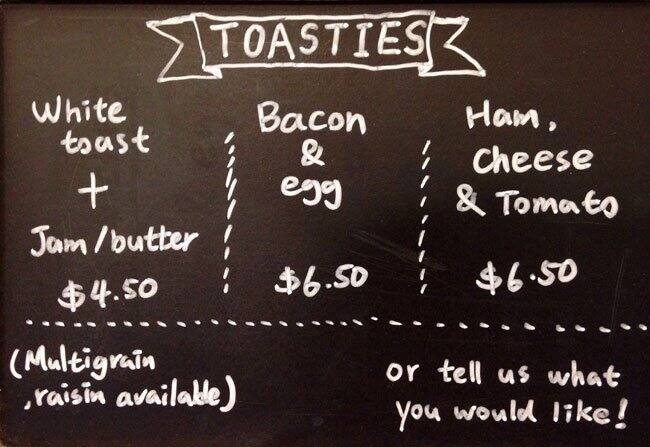 TOASTIES
White
toast
+
Jam/butter
$4.50
Bacon
&
egg
$6.50
Ham,
cheese
& Tomato
$6.50
(Multigrain
,raisin available)
or tell us what
you would like!